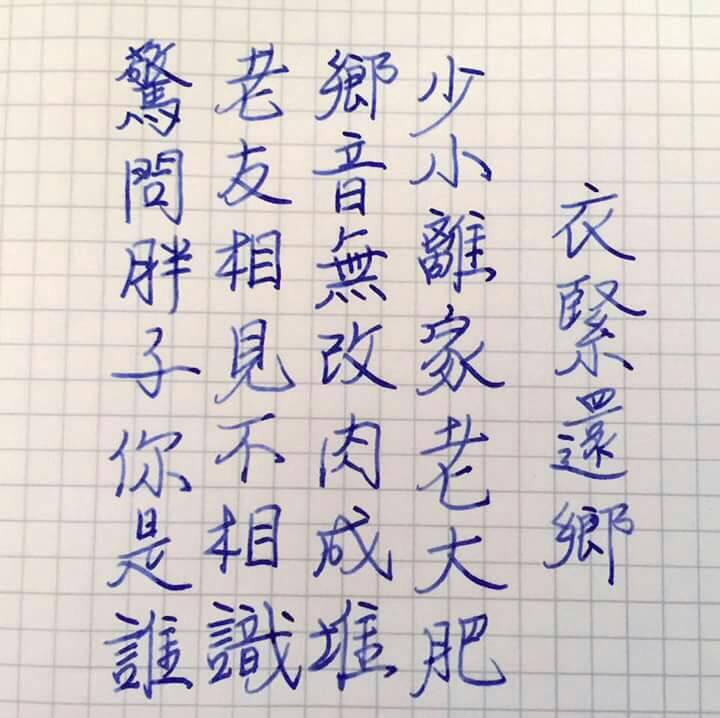 衣緊還鄉
少小離家老大肥
鄉音無改肉成堆
老友相見不相識
驚問胖子你是誰